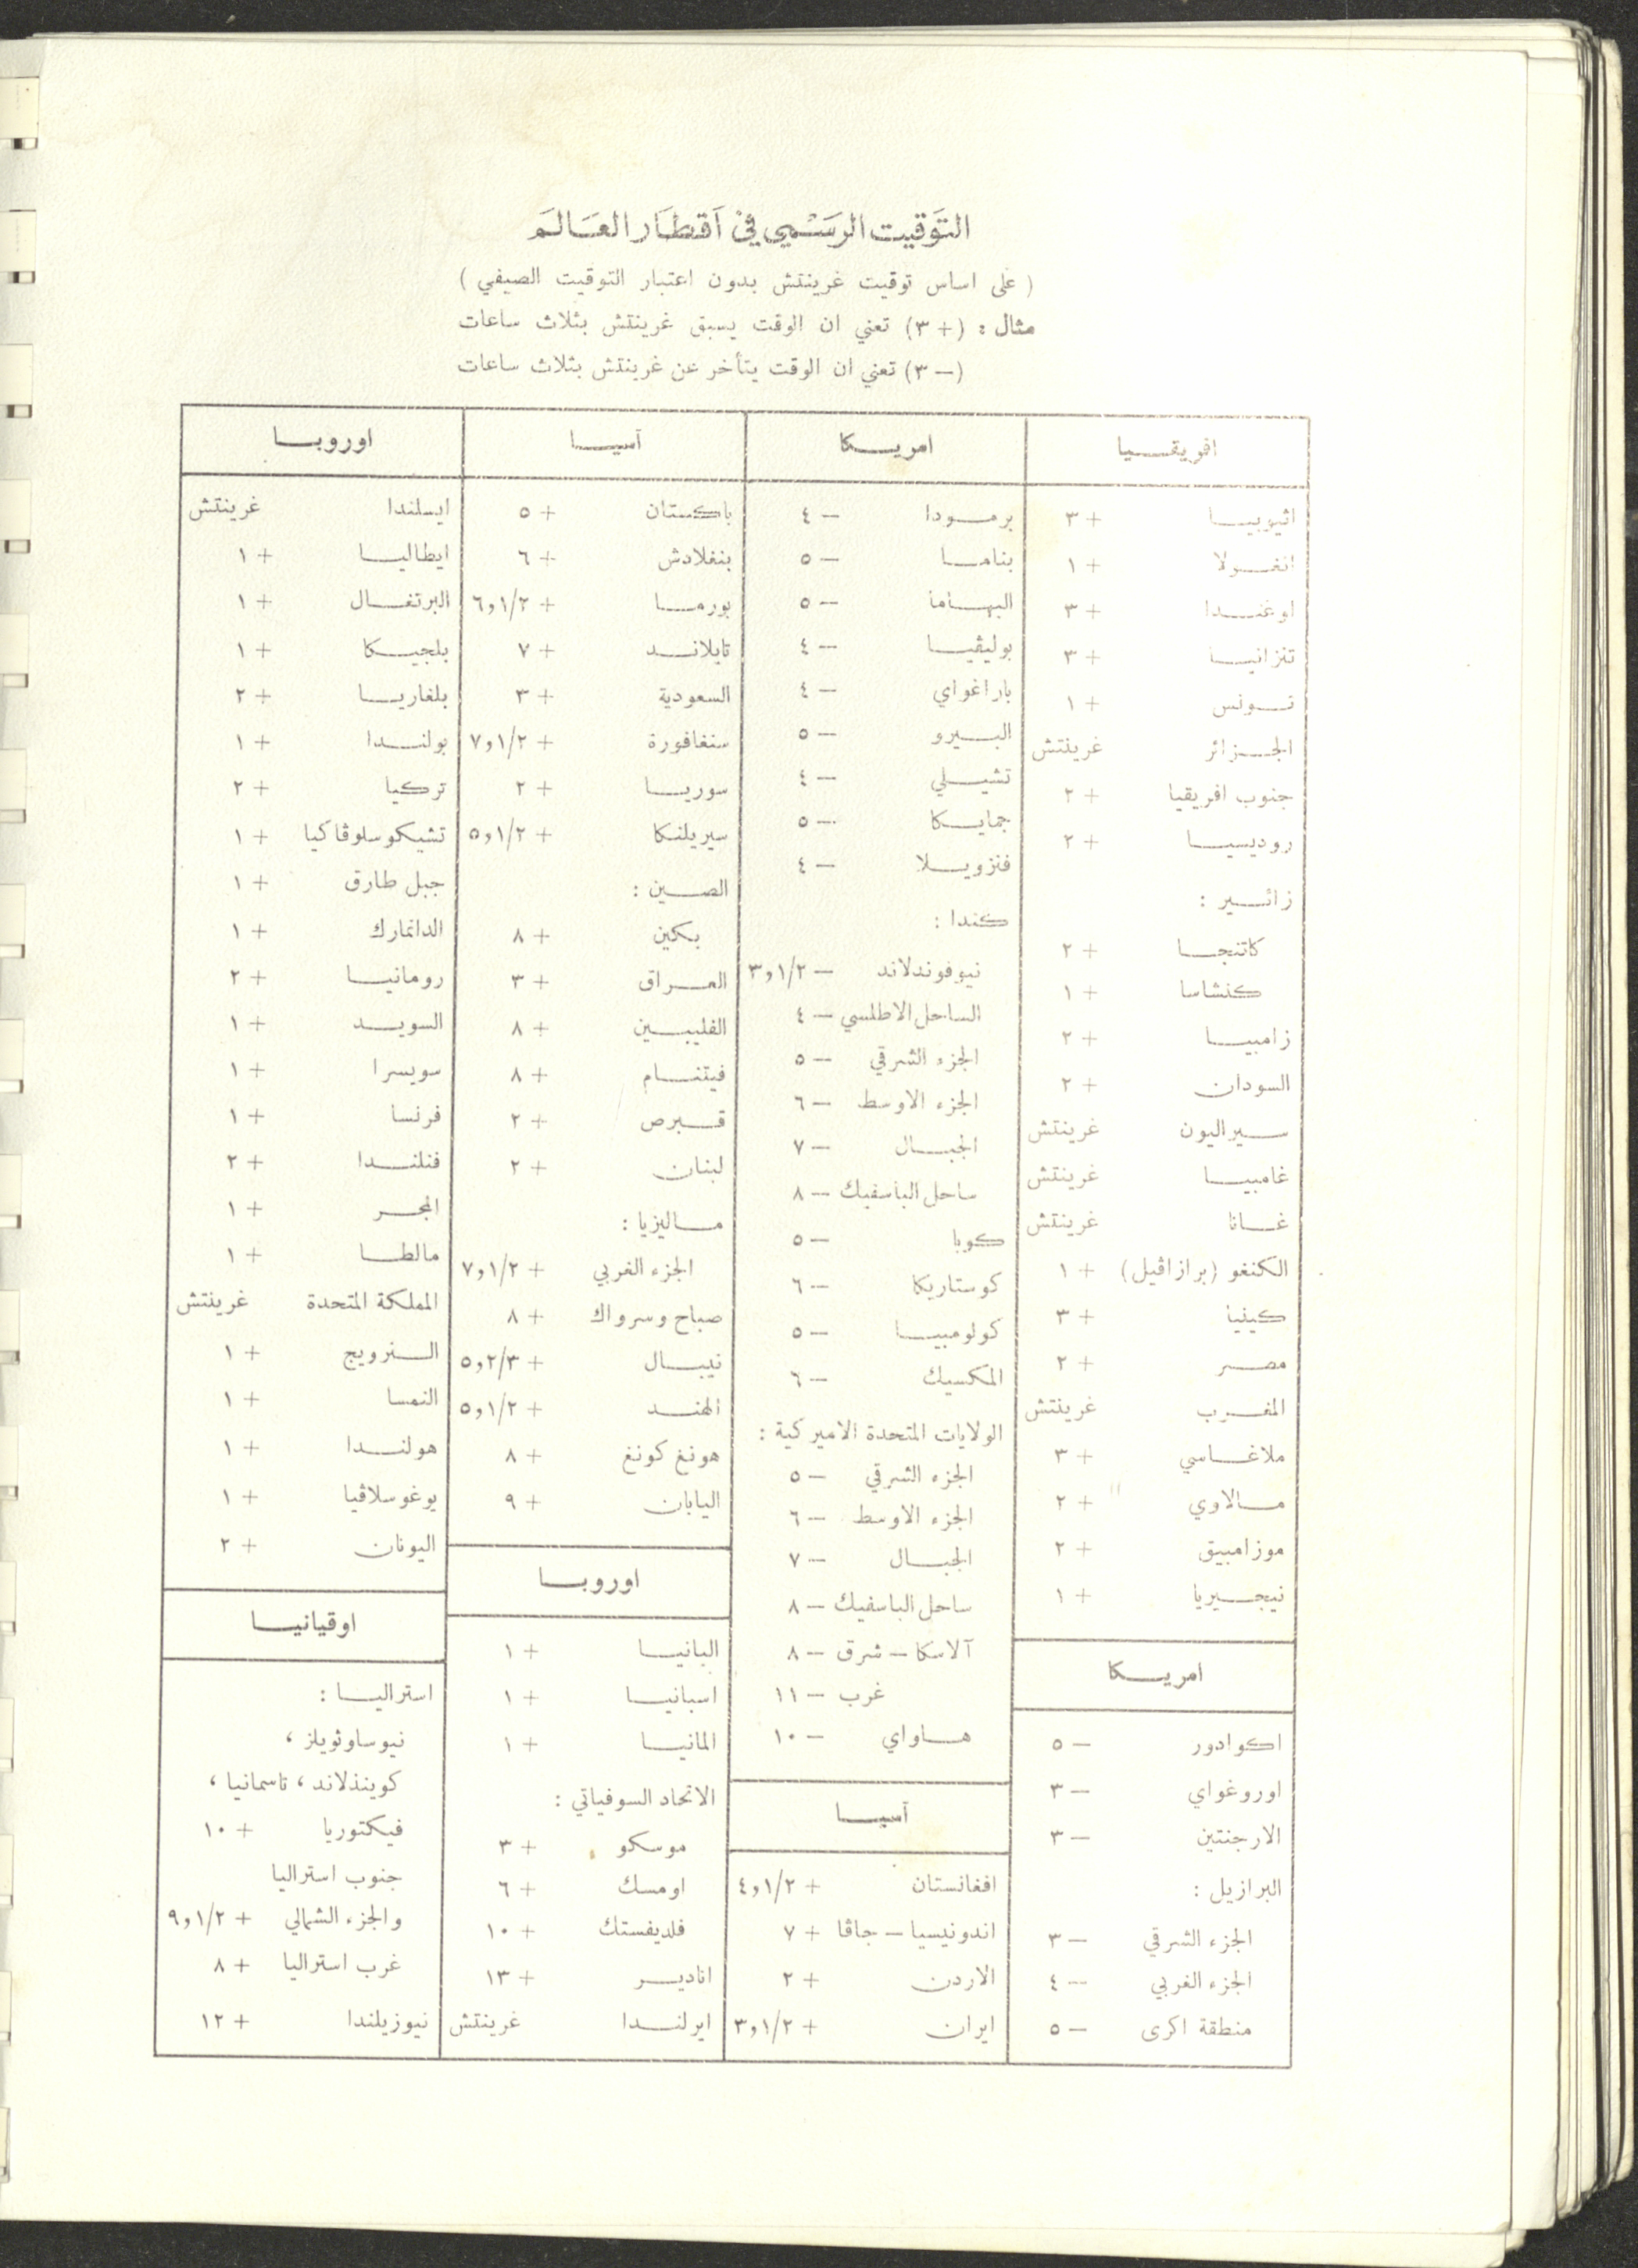 التوقيت الرسمي في اقطار العالم
( على اساس توقيت غرينتش بدون اعتبار التوقيت الصيفي )
مثال : (+ ٣) تعني ان الوقت يسبق غرينتش بثلاث ساعات
(— ٣) تعني ان الوقت يتأخر عن غرينتش بثلاث ساعات
افريقيا
اثيوبيا + ٣
انغولا + ١
اوغندا + ٣
تنزانيا + ٣
تونس + ١
الجزائر غرينتش
جنوب افريقيا + ٢
روديسيا + ٢
زائير :
كاتنجا + ٢
كنشاسا + ١
زامبيا + ٢
السودان + ٢
سيراليون غرينتش
غامبيا غرينتش
غانا غرينتش
الكنغو (برازاڤيل) + ١
كينيا + ٣
مصر + ٢
المغرب غرينتش
ملاغاسي + ٣
مالاوي + ٢
موزامبيق + ٢
نيجيريا + ١
امريكا
اكوادور — ٥
اوروغواي — ٣
الارجنتين — ٣
البرازيل :
الجزء الشرقي — ٣
الجزء الغربي — ٤
منطقة اكرى — ٥
امريكا
برمودا — ٤
بناما — ٥
البهاما — ٥
بوليڤيا — ٤
باراغواي — ٤
البيرو — ٥
تشيلي — ٤
جمايكا — ٥
فنزويلا — ٤
كندا :
نيوفوندلاند — ١/٢و٣
الساحل الاطلسي — ٤
الجزء الشرقي — ٥
الجزء الاوسط — ٦
الجبال — ٧
ساحل الباسفيك — ٨
كوبا — ٥
كوستاريكا — ٦
كولومبيا — ٥
المكسيك — ٦
الولايات المتحدة الاميركية :
الجزء الشرقي — ٥
الجزء الاوسط — ٦
الجبال — ٧
ساحل الباسفيك — ٨
آلاسكا — شرق — ٨
غرب — ١١
هاواي — ١٠
آسيا
افغانستان + ١/٢و٤
اندونيسيا — جاڤا + ٧
الاردن + ٢
ايران + ١/٢و٣
آسيا
باكستان + ٥
بنغلادش + ٦
بورما + ١/٢و٦
تايلاند + ٧
السعودية + ٣
سنغافورة + ١/٢و٧
سوريا + ٢
سيريلنكا + ١/٢و٥
الصين :
بكين + ٨
العراق + ٣
الفليبين + ٨
فيتنام + ٨
قبرص + ٢
لبنان + ٢
ماليزيا :
الجزء الغربي + ١/٢و٧
صباح وسرواك + ٨
نيبال + ٢/٣و٥
الهند + ١/٢و٥
هونغ كونغ + ٨
اليابان + ٩
اوروبا
البانيا + ١
اسبانيا + ١
المانيا + ١
الاتحاد السوفياتي :
موسكو + ٣
اومسك + ٦
فلديفستك + ١٠
انادير + ١٣
ايرلندا غرينتش
اوروبا
ايسلندا غرينتش
ايطاليا + ١
البرتغال + ١
بلجيكا + ١
بلغاريا + ٢
بولندا + ١
تركيا + ٢
تشيكوسلوڤاكيا + ١
جبل طارق + ١
الدانمارك + ١
رومانيا + ٢
السويد + ١
سويسرا + ١
فرنسا + ١
فنلندا + ٢
المجر + ١
مالطا + ١
المملكة المتحدة غرينتش
النرويج + ١
النمسا + ١
هولندا + ١
يوغوسلاڤيا + ١
اليونان + ٢
اوقيانيا
استراليا :
نيوساوثويلز ،
كوينذلاند ، تاسمانيا ،
فيكتوريا + ١٠
جنوب استراليا
والجزء الشمالي + ١/٢و٩
غرب استراليا + ٨
نيوزيلندا + ١٢